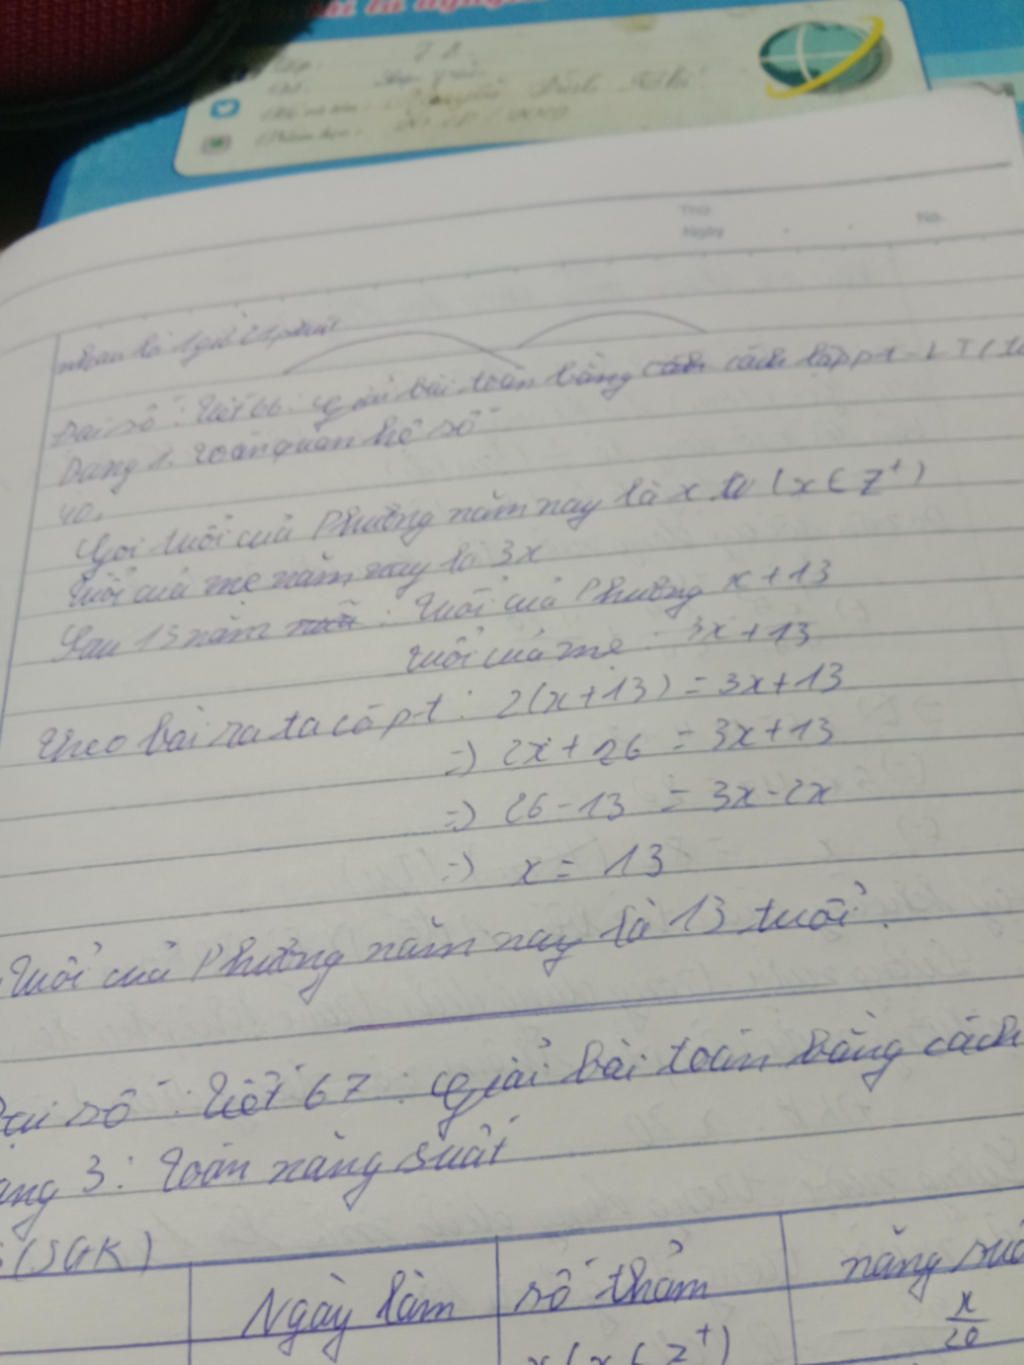 7B
Thứ
Ngày
No.
Đại số: Tiết 66: Giải bài toán bằng cách lập pt - LT (
Dạng 1. Toán quan hệ số
40.
Gọi tuổi của Phương năm nay là x (x ∈ Z⁺)
Tuổi của mẹ năm nay là 3x
Sau 13 năm : Tuổi của Phương x + 13
Tuổi của mẹ : 3x + 13
Theo bài ra ta có pt : 2(x + 13) = 3x + 13
=> 2x + 26 = 3x + 13
=> 26 - 13 = 3x - 2x
=> x = 13
Tuổi của Phương năm nay là 13 tuổi.
Đại số : Tiết 67 : Giải bài toán bằng cách
ạng 3 : Toán năng suất
(SGK)
Ngày làm số thảm năng suấ
x (x ∈ Z⁺) x/20